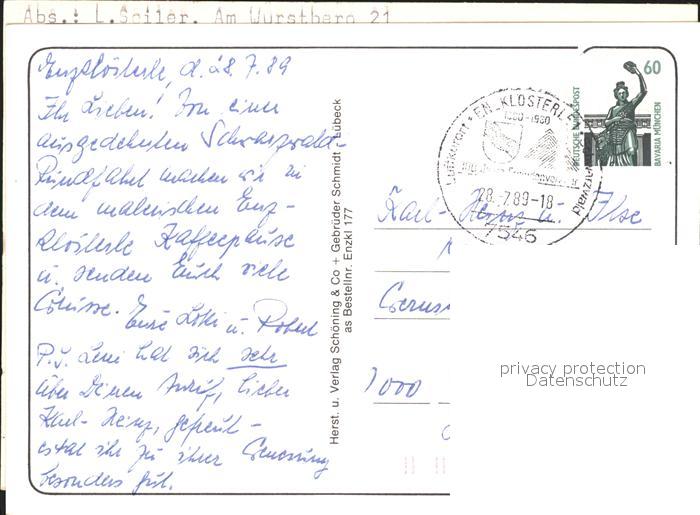 Abs.: L.Sciler. Am Wurstberg 21
Enzklösterle, d. 28.7.89
Ihr Lieben! Von einer
ausgedehnten Schwarzwald-
Rundfahrt machen wir in
dem malerischen Enz-
klösterle Kaffeepause
u. senden Euch viele
Grüsse. Eure Lotti u. Robert
P.S. Leni hat sich sehr
über Deinen Anruf, lieber
Karl-Heinz, gefreut -
es tat ihr zu ihrer Genesung
besonders gut.
Herst. u. Verlag Schöning & Co + Gebrüder Schmidt Lübeck
as Bestellnr. Enzkl 177
Luftkurort * ENZKLÖSTERLE
1330-1980
28.-7.89-18
7546
60
DEUTSCHE BUNDESPOST
BAVARIA MÜNCHEN
Karl-Heinz u. Ilse
1000
privacy protection
Datenschutz